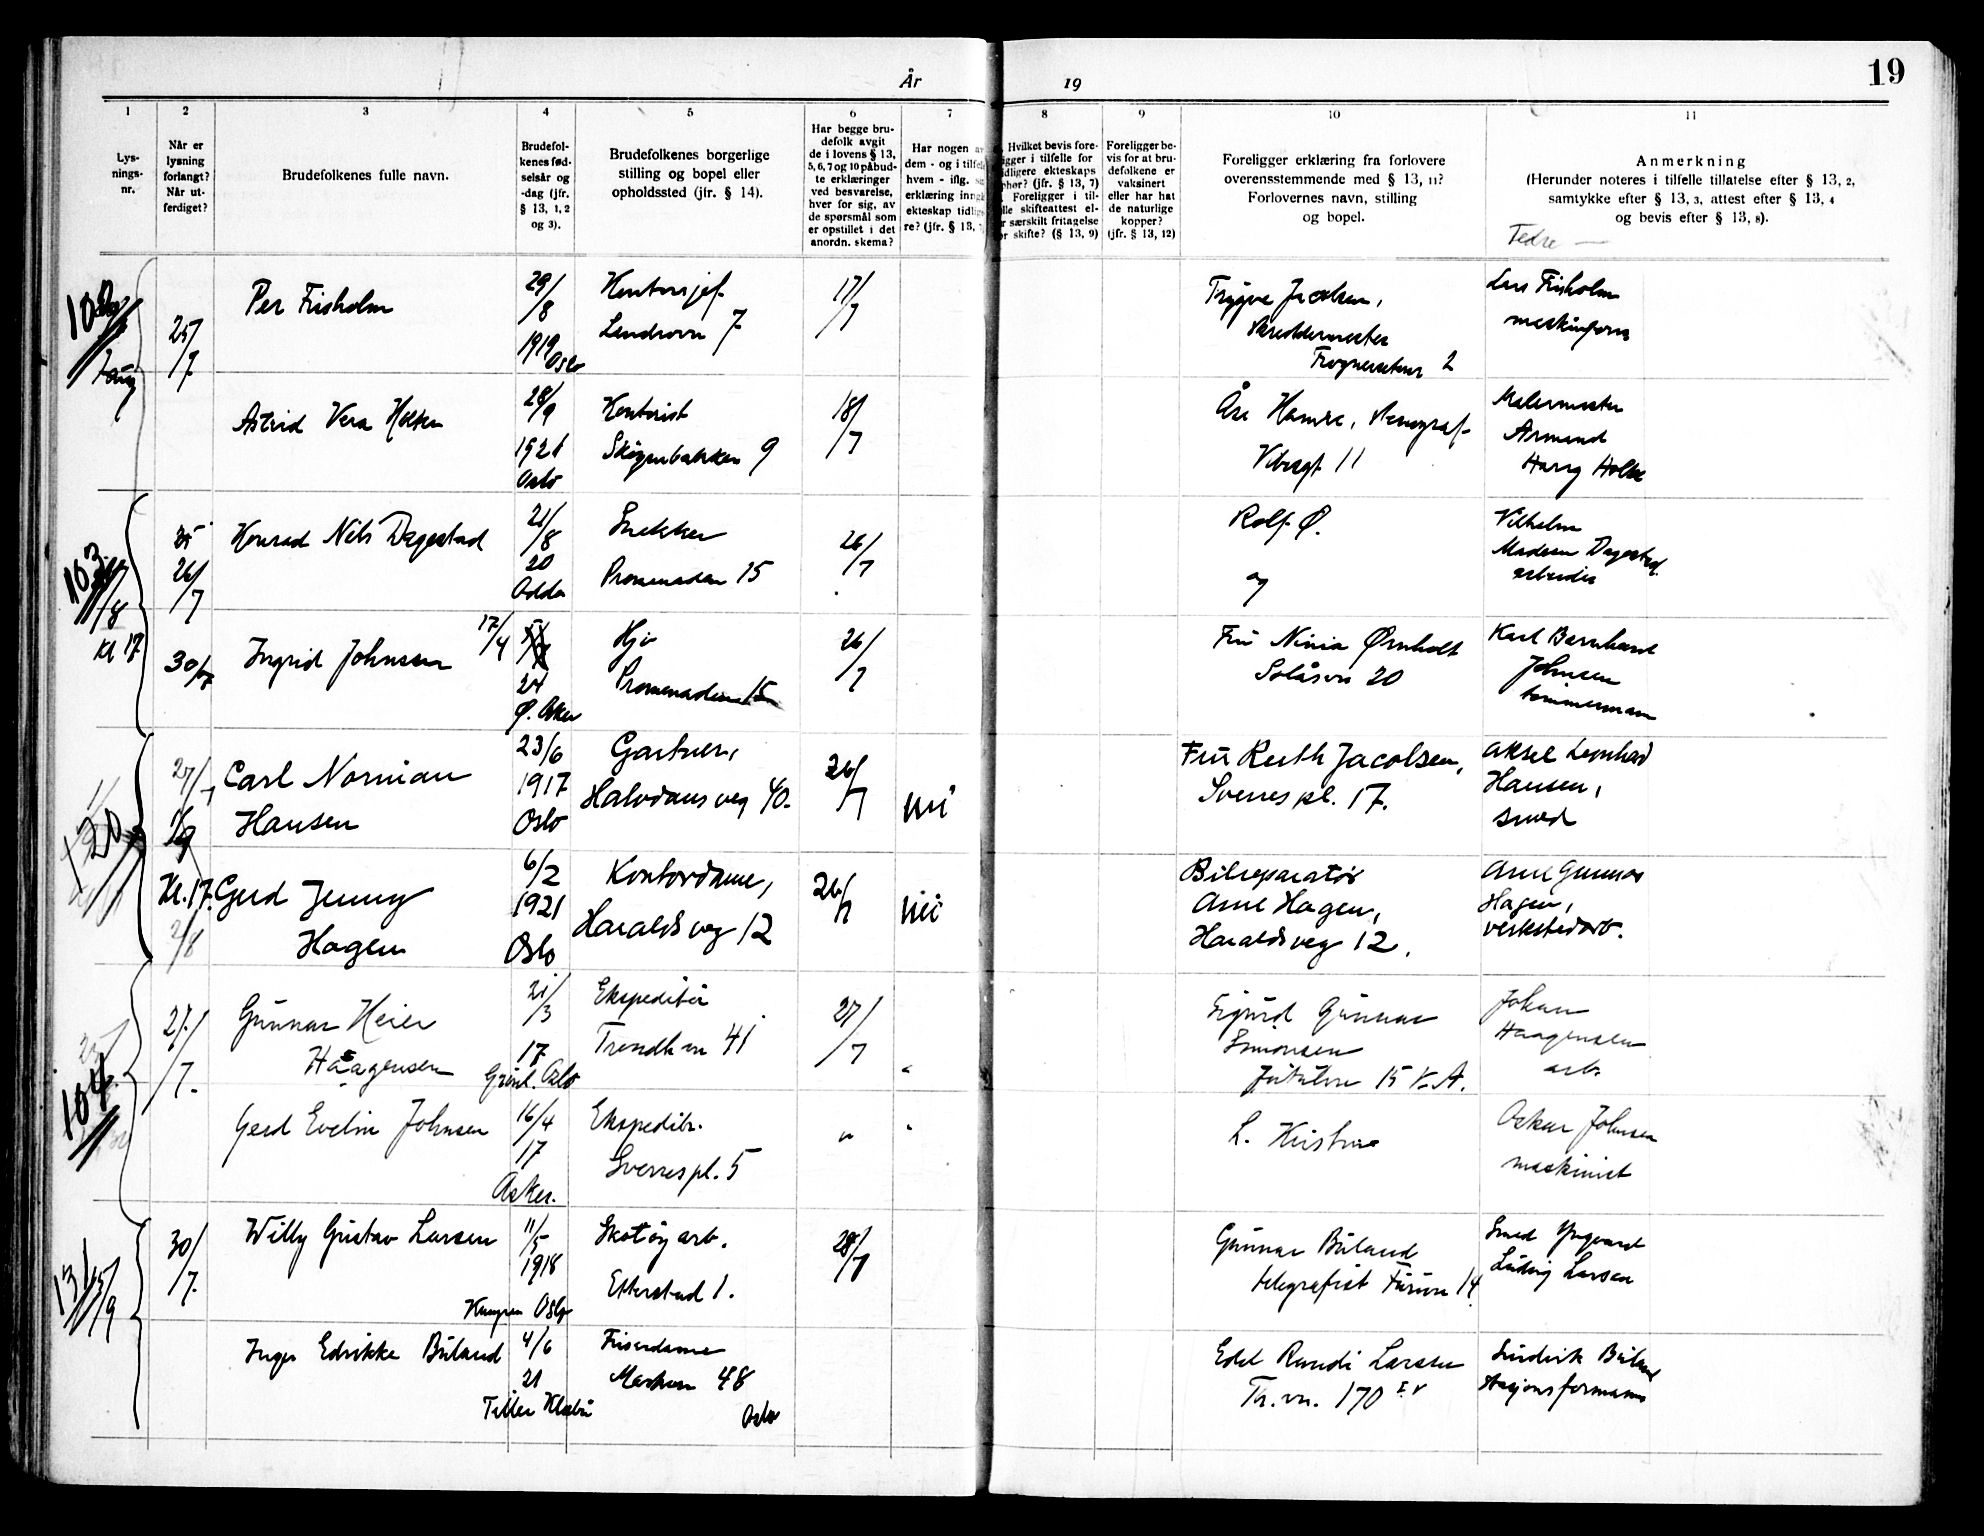 År 19
19
1 2 3 4 5 6 7 8 9 10 11
Lys-
nings-
nr.
Når er
lysning
forlangt?
Når ut-
ferdiget?
Brudefolkenes fulle navn.
Brudefol-
kenes fød-
selsår og
-dag (jfr.
§ 13, 1, 2
og 3).
Brudefolkenes borgerlige
stilling og bopel eller
opholdssted (jfr. § 14).
Har begge bru-
defolk avgit
de i lovens § 13,
5, 6, 7 og 10 påbud-
te erklæringer
ved besvarelse,
hver for sig, av
de spørsmål som
er opstillet i det
anordn. skema?
Har nogen
dem - og i tilfel
hvem - iflg.
erklæring inng
ekteskap tidlig
re? (jfr. § 13,
Hvilket bevis fore-
igger i tilfelle for
idligere ekteskaps
phør? (jfr. § 13, 7)
Foreligger i til-
lle skifteattest el-
r særskilt fritagelse
or skifte? (§ 13, 9)
Foreligger be-
vis for at bru-
defolkene er
vaksinert
eller har hat
de naturlige
kopper?
(jfr. § 13, 12)
Foreligger erklæring fra forlovere
overensstemmende med § 13, 11?
Forlovernes navn, stilling
og bopel.
Anmerkning
(Herunder noteres i tilfelle tillatelse efter § 13, 2,
samtykke efter § 13, 3, attest efter § 13, 4
og bevis efter § 13, 8).
Fedre —
25/7
Per Frisholm
29/8
1919 Oslo
Kontorsjef
7
17/7
Trygve Jacobsen,
Skreddermester
2
Lars Frisholm
Astrid Vera Holter
28/9
1921
Oslo
Kontorist
9
18/7
Åse Hamre, Stenograf
Vibesgt 11
Malermester
Armand
Harry Holter
103
Kl 17
26/7
Konrad Nils Dagestad
21/8
20
Odda
Snekker
Promenaden 15
26/7
Rolf Ø.
og
Vilhelm
Madsen Dagestad
arbeider
30/7
Ingrid Johnsen
17/4
24
Ø. Aker
Hjv
Promenaden 15
26/7
Fru Ninia Ørnholt
Solåsvn 20
Karl Bernhard
Johnsen
tømmermann
120
27/7
Carl Norman
Hansen
23/6
1917
Oslo
Gartner,
Halvdans veg 40.
26/7
nei
Fru Ruth Jacobsen,
Sverres pl. 17.
Aksel Leonhard
Hansen,
smed
Kl. 17.
2/8
Gerd Jenny
Hagen
6/2
1921
Oslo
Kontordame,
Haralds veg 12
26/7
nei
Bilreparatør
Arne Hagen,
Haralds veg 12.
Arne Gunnar
Hagen,
verkstedarb.
104
27/7.
Gunnar Heier
Haagensen
21/3
17
Grønl. Oslo
Ekspeditør
Trondh.vn 41
27/7
"
Sigurd Gunnar
Simonsen
15 V. A.
Johan
Haagensen
arb.
Gerd Evelin Johnsen
16/4
17
Asker.
Ekspeditr.
Sverres pl. 5
"
"
Oskar Johnsen
maskinist
131
30/7.
Willy Gustav Larsen
11/5
1918
Kampen Oslo
Skotøyarb.
Etterstad 1.
28/7
Gunnar Buland
telegrafist Furuvn 14
Smed Yngvard
Ludvig Larsen
Inger Edrikke Buland
4/6
21
Tiller Klæbu
Friserdame
48
Oslo
Edel Randi Larsen
Th. vn. 170 IV
Buland
stasjonsformann